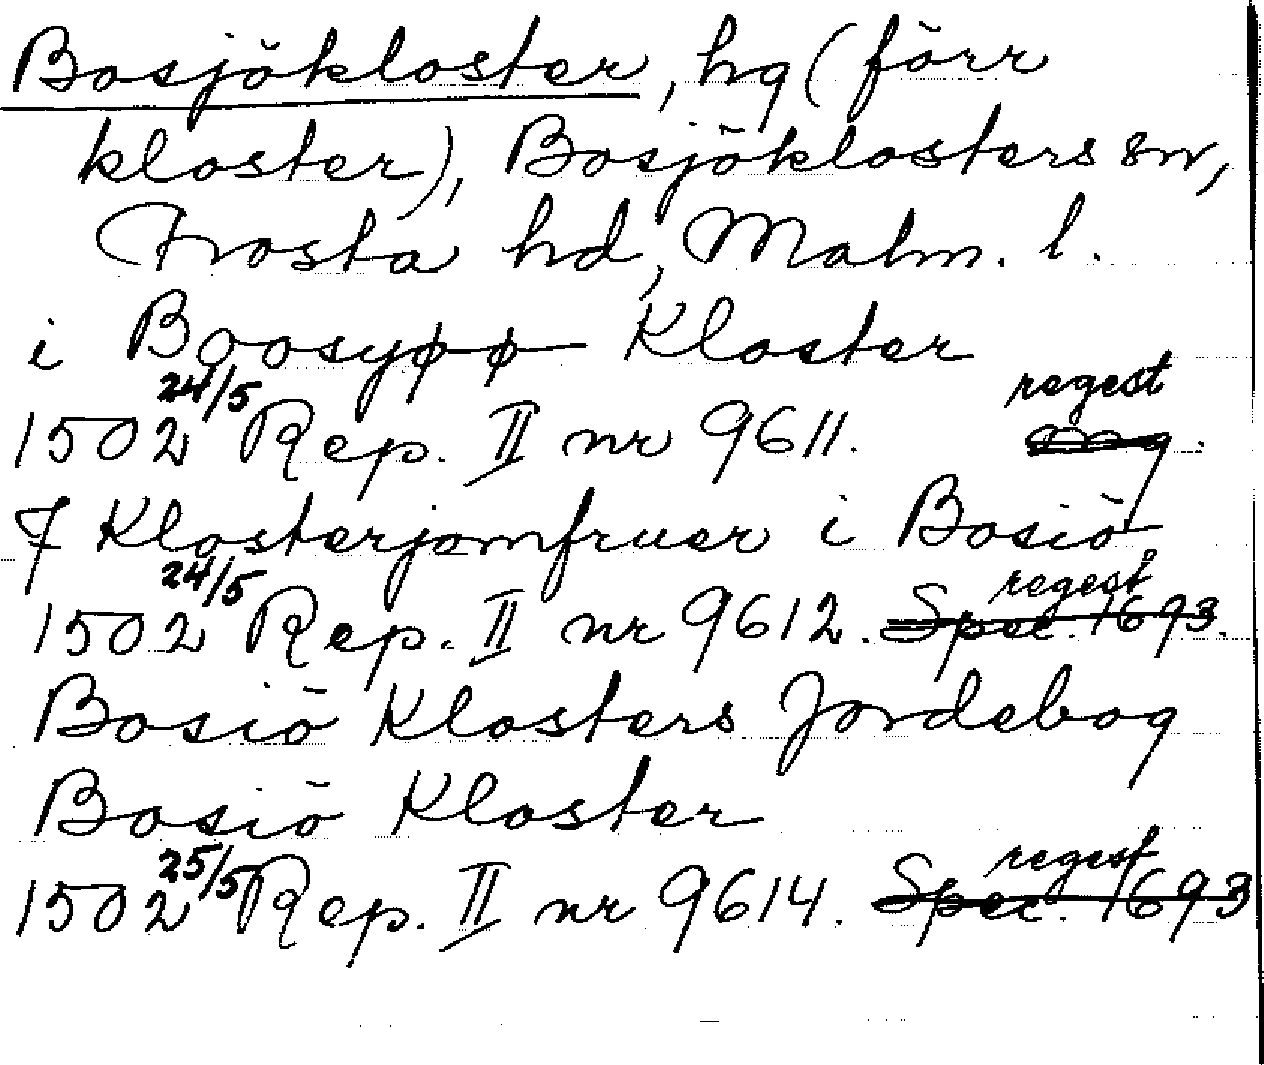 Bosjökloster, hg (förr
kloster), Bosjöklosters sn,
Frosta hd, Malm. l.
i Boosyøø Kloster
1502 24/5 Rep. II nr 9611. regest
7 Klosterjomfruer i Bosiö.
1502 24/5 Rep. II nr 9612. Spec. 1693. regest
Bosiö Klosters Jordebog
Bosiö Kloster
1502 25/5 Rep. II nr 9614. Spec. 1693 regest